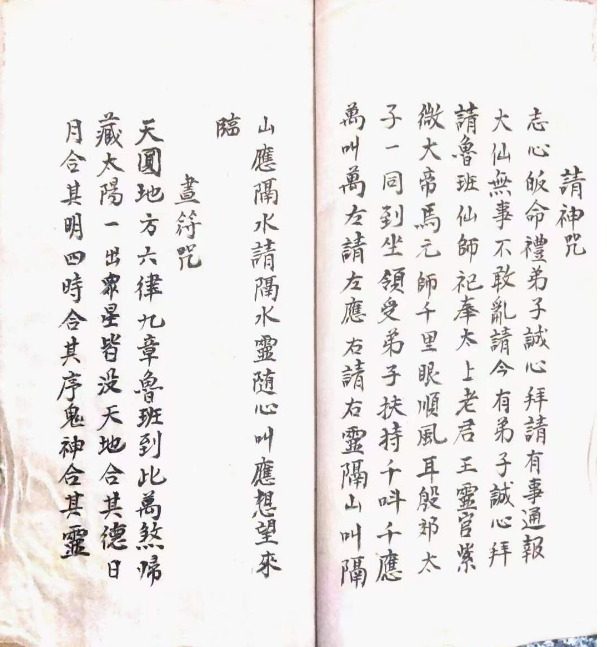 請神咒
志心皈命禮弟子誠心拜請有事通報
大仙無事不敢亂請今有弟子誠心拜
請魯班仙師祀奉太上老君王靈官紫
微大帝馬元師千里眼順風耳殷郊太
子一同到坐領受弟子扶持千叫千應
萬叫萬左請左應右請右靈隔山叫隔
山應隔水請隔水靈隨心叫應想望來
臨
畫符咒
天圓地方六律九章魯班到此萬煞歸
藏太陽一出眾星皆没天地合其德日
月合其明四時合其序鬼神合其靈